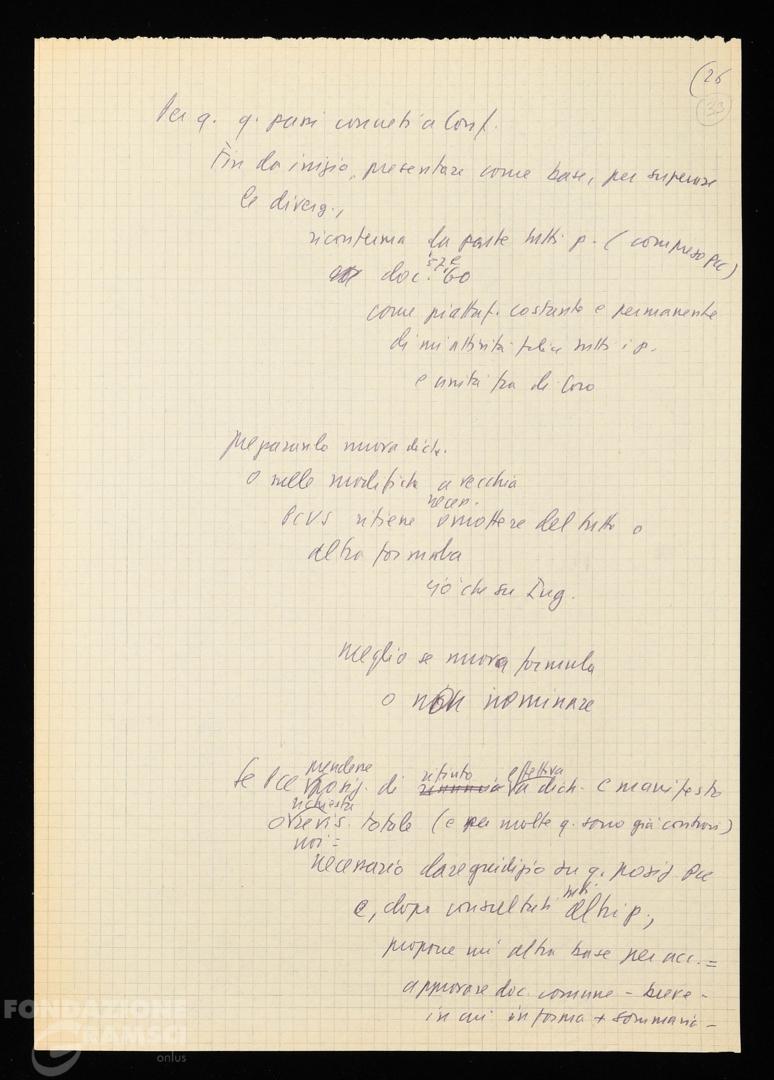 (26
33
Per q. q. passi concreti a Conf.
Fin da inizio, presentare come base, per superare
le diverg.,
riconferma da parte tutti p. (compreso Pcc)
doc. '57 e '60
come piattaf. costante e permanente
di attività tutti i p.
e unità tra di loro
preparando nuova dich.
o nelle modifiche a vecchia
necess.
PCUS ritiene omettere del tutto o
altra formula
ciò che su Iug.
meglio se nuova formula
o non nominare
prendesse ritiuto effettiva
Se Pcc posiz. di rinuncia a dich. e manifesto
richiesta
o revis. totale (e per molte q. sono già controv)
noi =
necessario dare giudizio su q. posiz Pcc
tutti
e, dopo consultati altri p.,
propone un' altra base per acc. =
approvare doc. comune - breve -
in cui in forma + sommaria -
FONDAZIONE
GRAMSCI
onlus